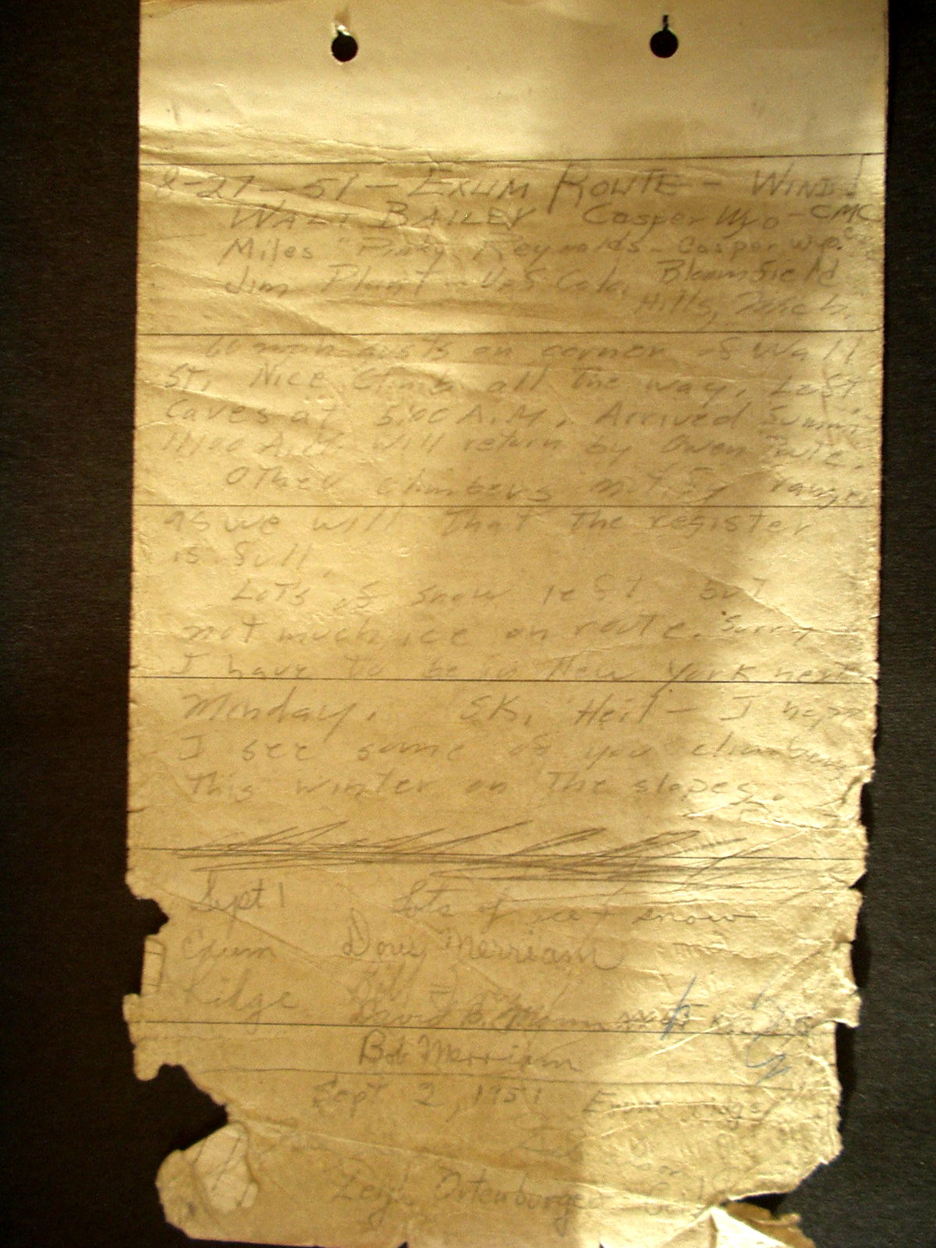 8-27-51 - EXUM ROUTE - WIND!
WALT BAILEY Casper Wyo - CMC
Miles "Pinky" Reynolds - Casper Wyo.
Jim Plant - U of Colo. Bloomfield
Hills, Mich.
60 mph gusts on corner of Wall
St. Nice climb all the way. Left
Caves at 5:00 A.M. Arrived Summit
11:00 A.M. will return by Owen route.
Other climbers notify ranger
as we will that the register
is full.
Lots of snow left but
not much ice on route. Sorry
I have to be in New York next
Monday. Ski Heil - I hope
I see some of you climbers
this winter on the slopes.
Sept 1 Lots of ice & snow
Exum Doug Merriam
Ridge
David B.
Bob Merriam
Sept 2, 1951 Exum
Leigh Ortenburger